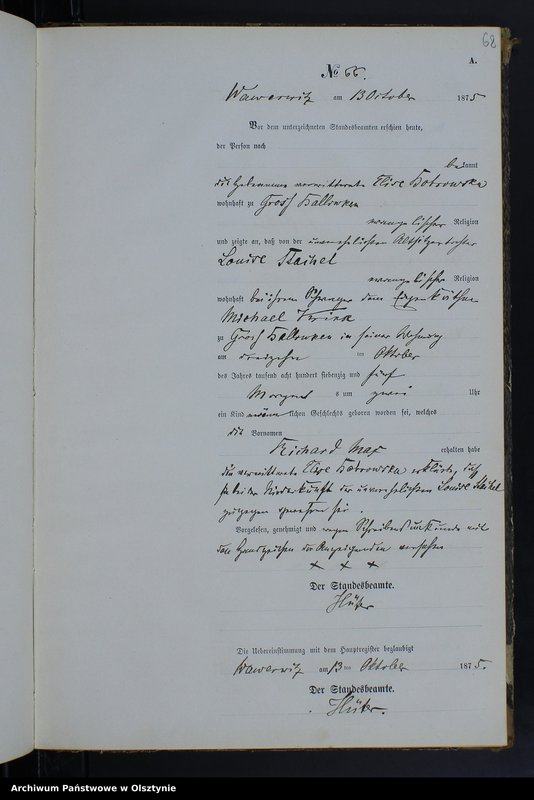 62
A.
No 66.
Wawerwitz am 13 October 1875
Vor dem unterzeichneten Standesbeamten erschien heute,
der Person nach
bekannt
die Hebeamme verwittwete Elise Bobrowska
wohnhaft zu Gross Ballowken
evangelischer Religion
und zeigte an, daß von der unverehelichten Altsitzertochter
Louise
evangelischer Religion
wohnhaft bei ihrem Schwager dem Eigenkäthner
Michael
zu Gross Ballowken in seiner Wohnung
am dreizehn ten October
des Jahres tausend acht hundert siebenzig und fünf
Morgens um zwei Uhr
ein Kind männlichen Geschlechts geboren worden sei, welches
die Vornamen
Richard Max erhalten habe
die verwittwete Elise Bobrowska erklärte, daß
sie bei der Niederkunft der unverehelichten Louise
zugegen gewesen sei.
Vorgelesen, genehmigt und wegen Schreibensunkunde mit
den Handzeichen der Anzeigenden versehen
+ + +
Der Standesbeamte.
Hüter
Die Uebereinstimmung mit dem Hauptregister beglaubigt
Wawerwitz am 13 ten October 1875.
Der Standesbeamte.
Hüter.
Archiwum Państwowe w Olsztynie